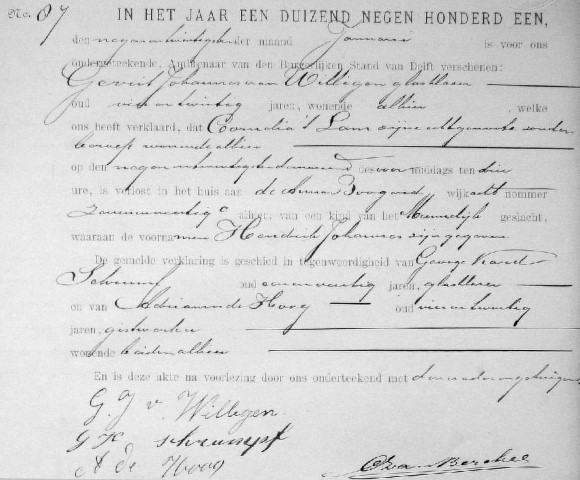 No. 87 IN HET JAAR EEN DUIZEND NEGEN HONDERD EEN,
den negen en twintigsten der maand Januari is voor ons
ondergeteekende, Ambtenaar van den Burgerlijken Stand van Delft verschenen:
Gerrit Johannes van Willigen
oud vier en twintig jaren, wonende alhier, welke
ons heeft verklaard, dat Cornelia 't Lam zijne echtgenoote zonder
beroep wonende alhier
op den negen en twintigsten dezer des voor middags ten drie
ure, is verlost in het huis aan de Boogerd, wijk acht nommer
alhier, van een kind van het Mannelijk geslacht,
waaraan de voornamen Hendrik Johannes zijn gegeven
De gemelde verklaring is geschied in tegenwoordigheid van George Karel
Schrumpf oud jaren,
en van Adrianus de Hoog oud vier en twintig
jaren, gistwerker
wonende beiden alhier
En is deze akte na voorlezing door ons onderteekend met den vader en getuigen
G. J v. Willigen
G K schrumpf
A de Hoog
van Berckel